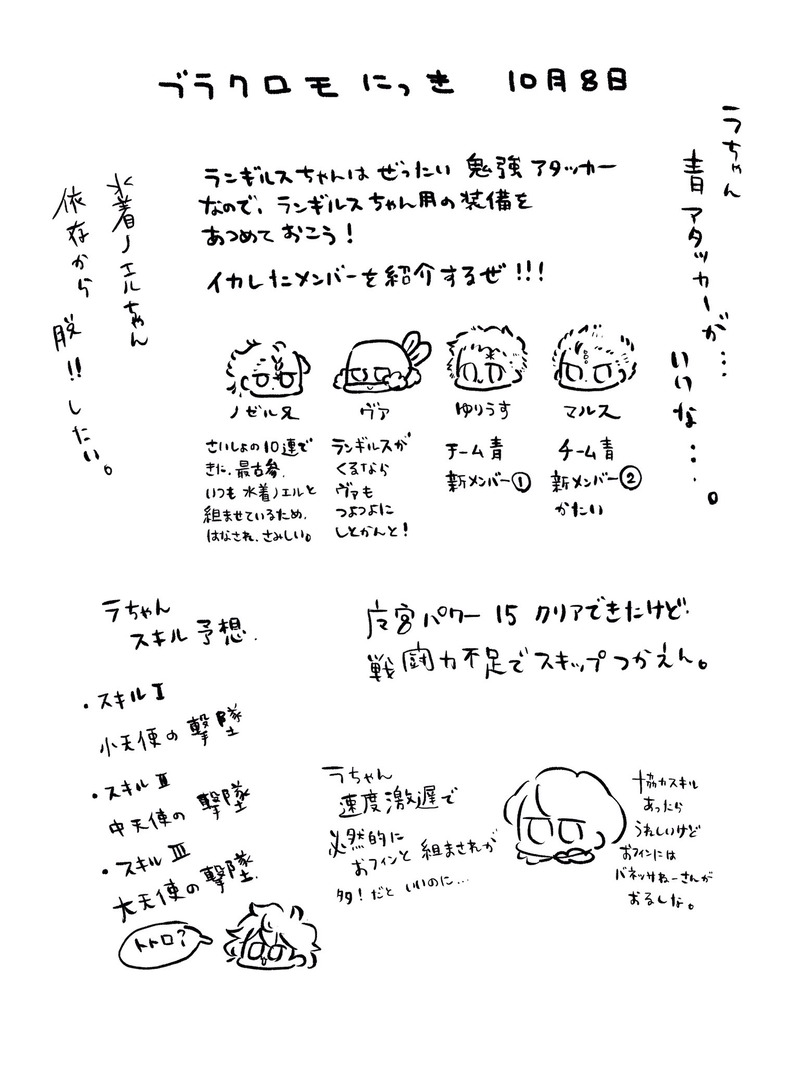 ブラクロモ にっき　10月8日
ラちゃん
青アタッカーが…
いいな…。
ランギルスちゃんは ぜったい 勉強 アタッカー
なので、ランギルスちゃん用の装備を
あつめて おこう！
イカしたメンバーを紹介するぜ!!!
水着ノエルちゃん
依存から 脱!!したい。
ノゼル兄
さいしょの10連で
きた、最古参、
いつも 水着ノエルと
組ませているため、
はなされ、さみしい。
ヴァ
ランギルスが
くるなら
ヴァも
つよつよに
しとかんと!
ゆりうす
チーム青
新メンバー①
マルス
チーム青
新メンバー②
かたい
ラちゃん
スキル予想.
・スキルⅠ
小天使の撃墜
・スキルⅡ
中天使の撃墜
・スキルⅢ
大天使の撃墜.
トトロ?
魔宮パワー15 クリアできたけど、
戦闘力不足でスキップつかえん。
ラちゃん
速度激遅で
必然的に
おフィンと 組まされが
タタ！だと いいのに…
協力スキル
あったら
うれしいけど
おフィンには
バネッサねーさんが
おるしな。